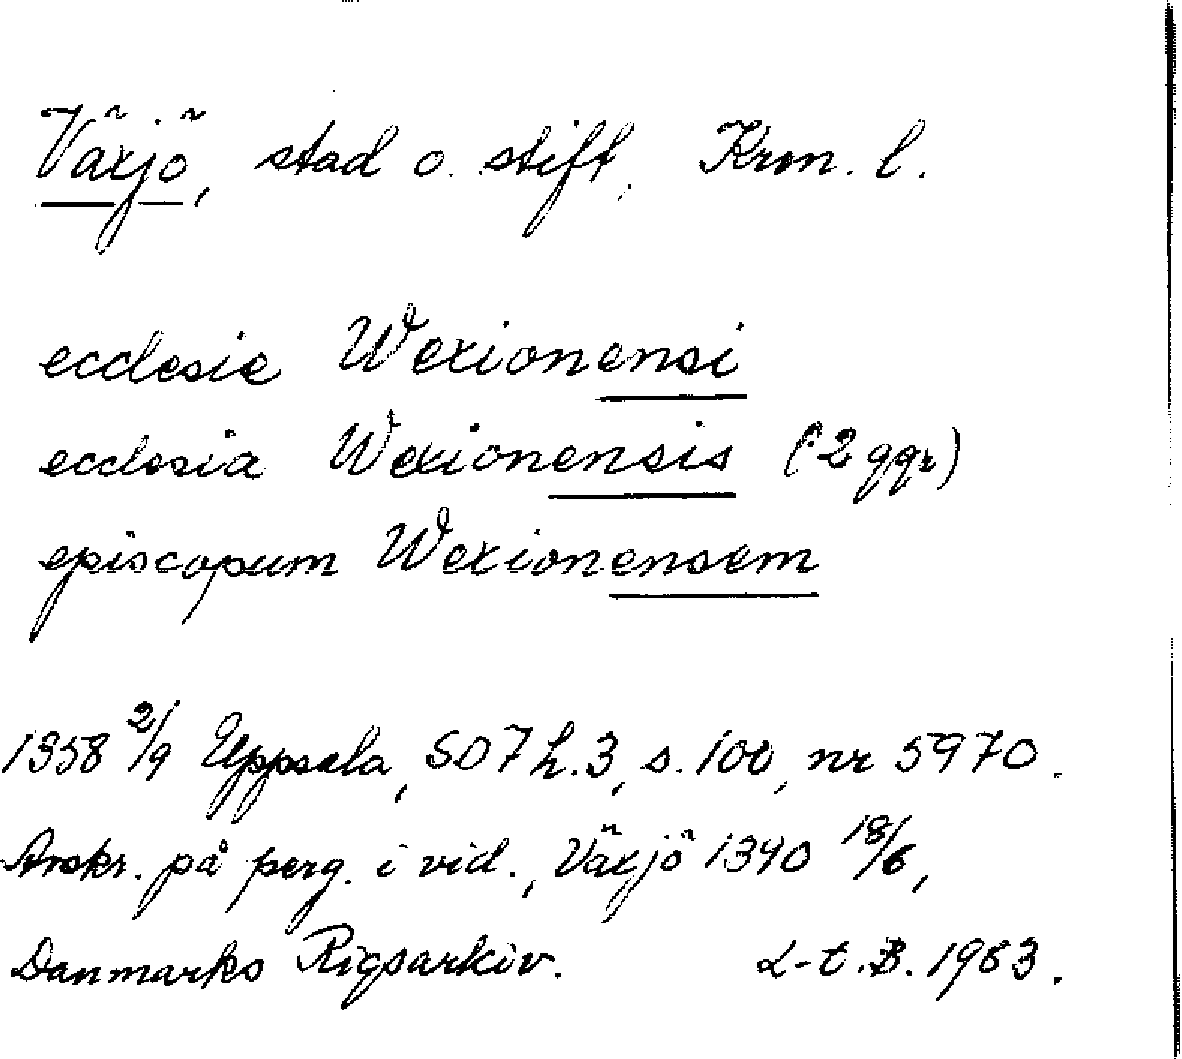 Växjö, stad o. stift, Kron. l.
ecclesie Wexionensi
ecclesia Wexionensis (: 2 ggr)
episcopum Wexionensem
1358 2/9 Uppsala, SD7 h.3, s. 100, nr 5970.
Avskr. på perg. i vid., Växjö 1390 18/6,
Danmarks Rigsarkiv. L-t.B. 1963.